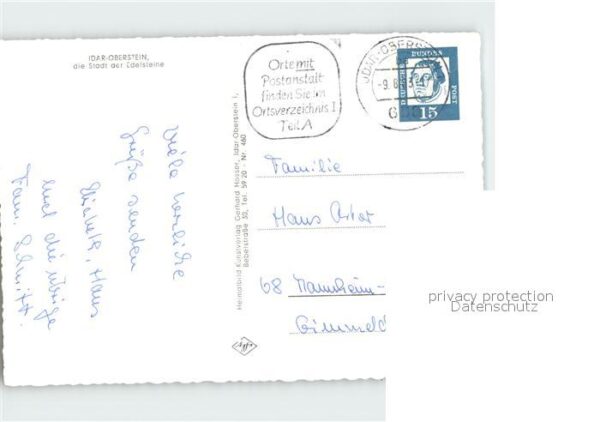 IDAR-OBERSTEIN,
die Stadt der Edelsteine
Orte mit
Postanstalt
finden Sie im
Ortsverzeichnis I
Teil A
IDAR-OBERS
-9.8.
DEUTSCHE
BUNDES
POST
15
Viele herzliche
Grüße senden
Hans
und die übrige
Fam. Schmitt.
Heimatbild Kunstverlag Gerhard Hosser, Idar-Oberstein I,
Bebelstraße 50, Tel. 59 20 - Nr. 460
Familie
Hans
68 Mannheim-
privacy protection
Datenschutz